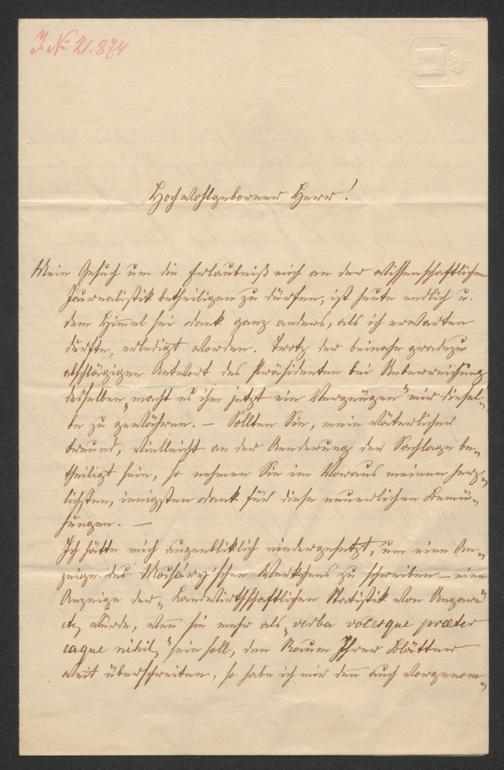 J. N. 21.874
Hochwohlgeborner Herr!
Mein Gesuch um die Erlaubniß mich an der wissenschaftlichen
Journalistik betheiligen zu dürfen, ist heute endlich u.
dem Himmel sei Dank ganz anders, als ich erwarten
durfte, erledigt worden. Trotz der beinahe gradezu
abschlägigen Antwort des Präsidenten bei Ueberreichung
desselben „macht es ihm jetzt ein Vergnügen" mir diesel-
be zu gewähren. — Sollten Sie, mein väterlicher
Freund, vielleicht an der Aenderung der Sachlage be-
theiligt sein, so nehmen Sie im Voraus meinen herz-
lichsten, innigsten Dank für diese neuerlichen Bemü-
hungen. —
Ich hätte mich augenbliklich niedergesetzt, um eine An-
zeige des Werkchens zu schreiben — eine
Anzeige der „Landwirthschaftlichen Statistik von Ungarn"
etc würde, wenn sie mehr als „verba vocesque præter
eaque nihil" sein soll, den Raum Ihrer Blätter
weit überschreiten, so habe ich mir den auch vorgenom-